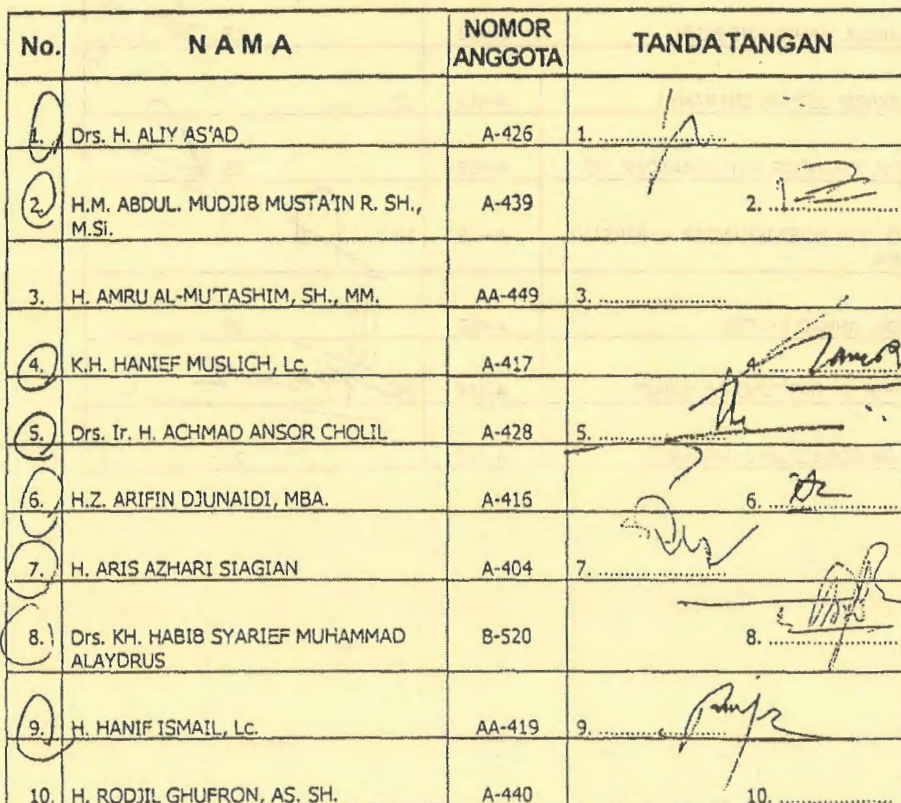 No. N A M A NOMOR ANGGOTA TANDA TANGAN
1. Drs. H. ALIY AS'AD A-426 1. ....................
2. H.M. ABDUL. MUDJIB MUSTA'IN R. SH., A-439 2. ....................
M.Si.
3. H. AMRU AL-MU'TASHIM, SH., MM. AA-449 3. ....................
4. K.H. HANIEF MUSLICH, Lc. A-417 4. ....................
5. Drs. Ir. H. ACHMAD ANSOR CHOLIL A-428 5. ....................
6. H.Z. ARIFIN DJUNAIDI, MBA. A-416 6. ....................
7. H. ARIS AZHARI SIAGIAN A-404 7. ....................
8. Drs. KH. HABIB SYARIEF MUHAMMAD B-520 8. ....................
ALAYDRUS
9. H. HANIF ISMAIL, Lc. AA-419 9. ....................
10. H. RODJIL GHUFRON, AS. SH. A-440 10. ....................